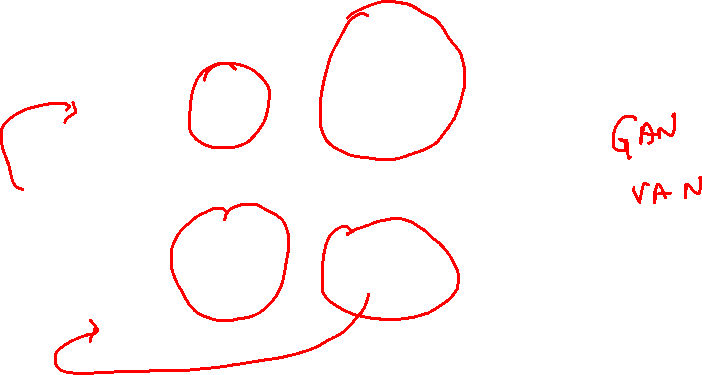 GAN
VAN